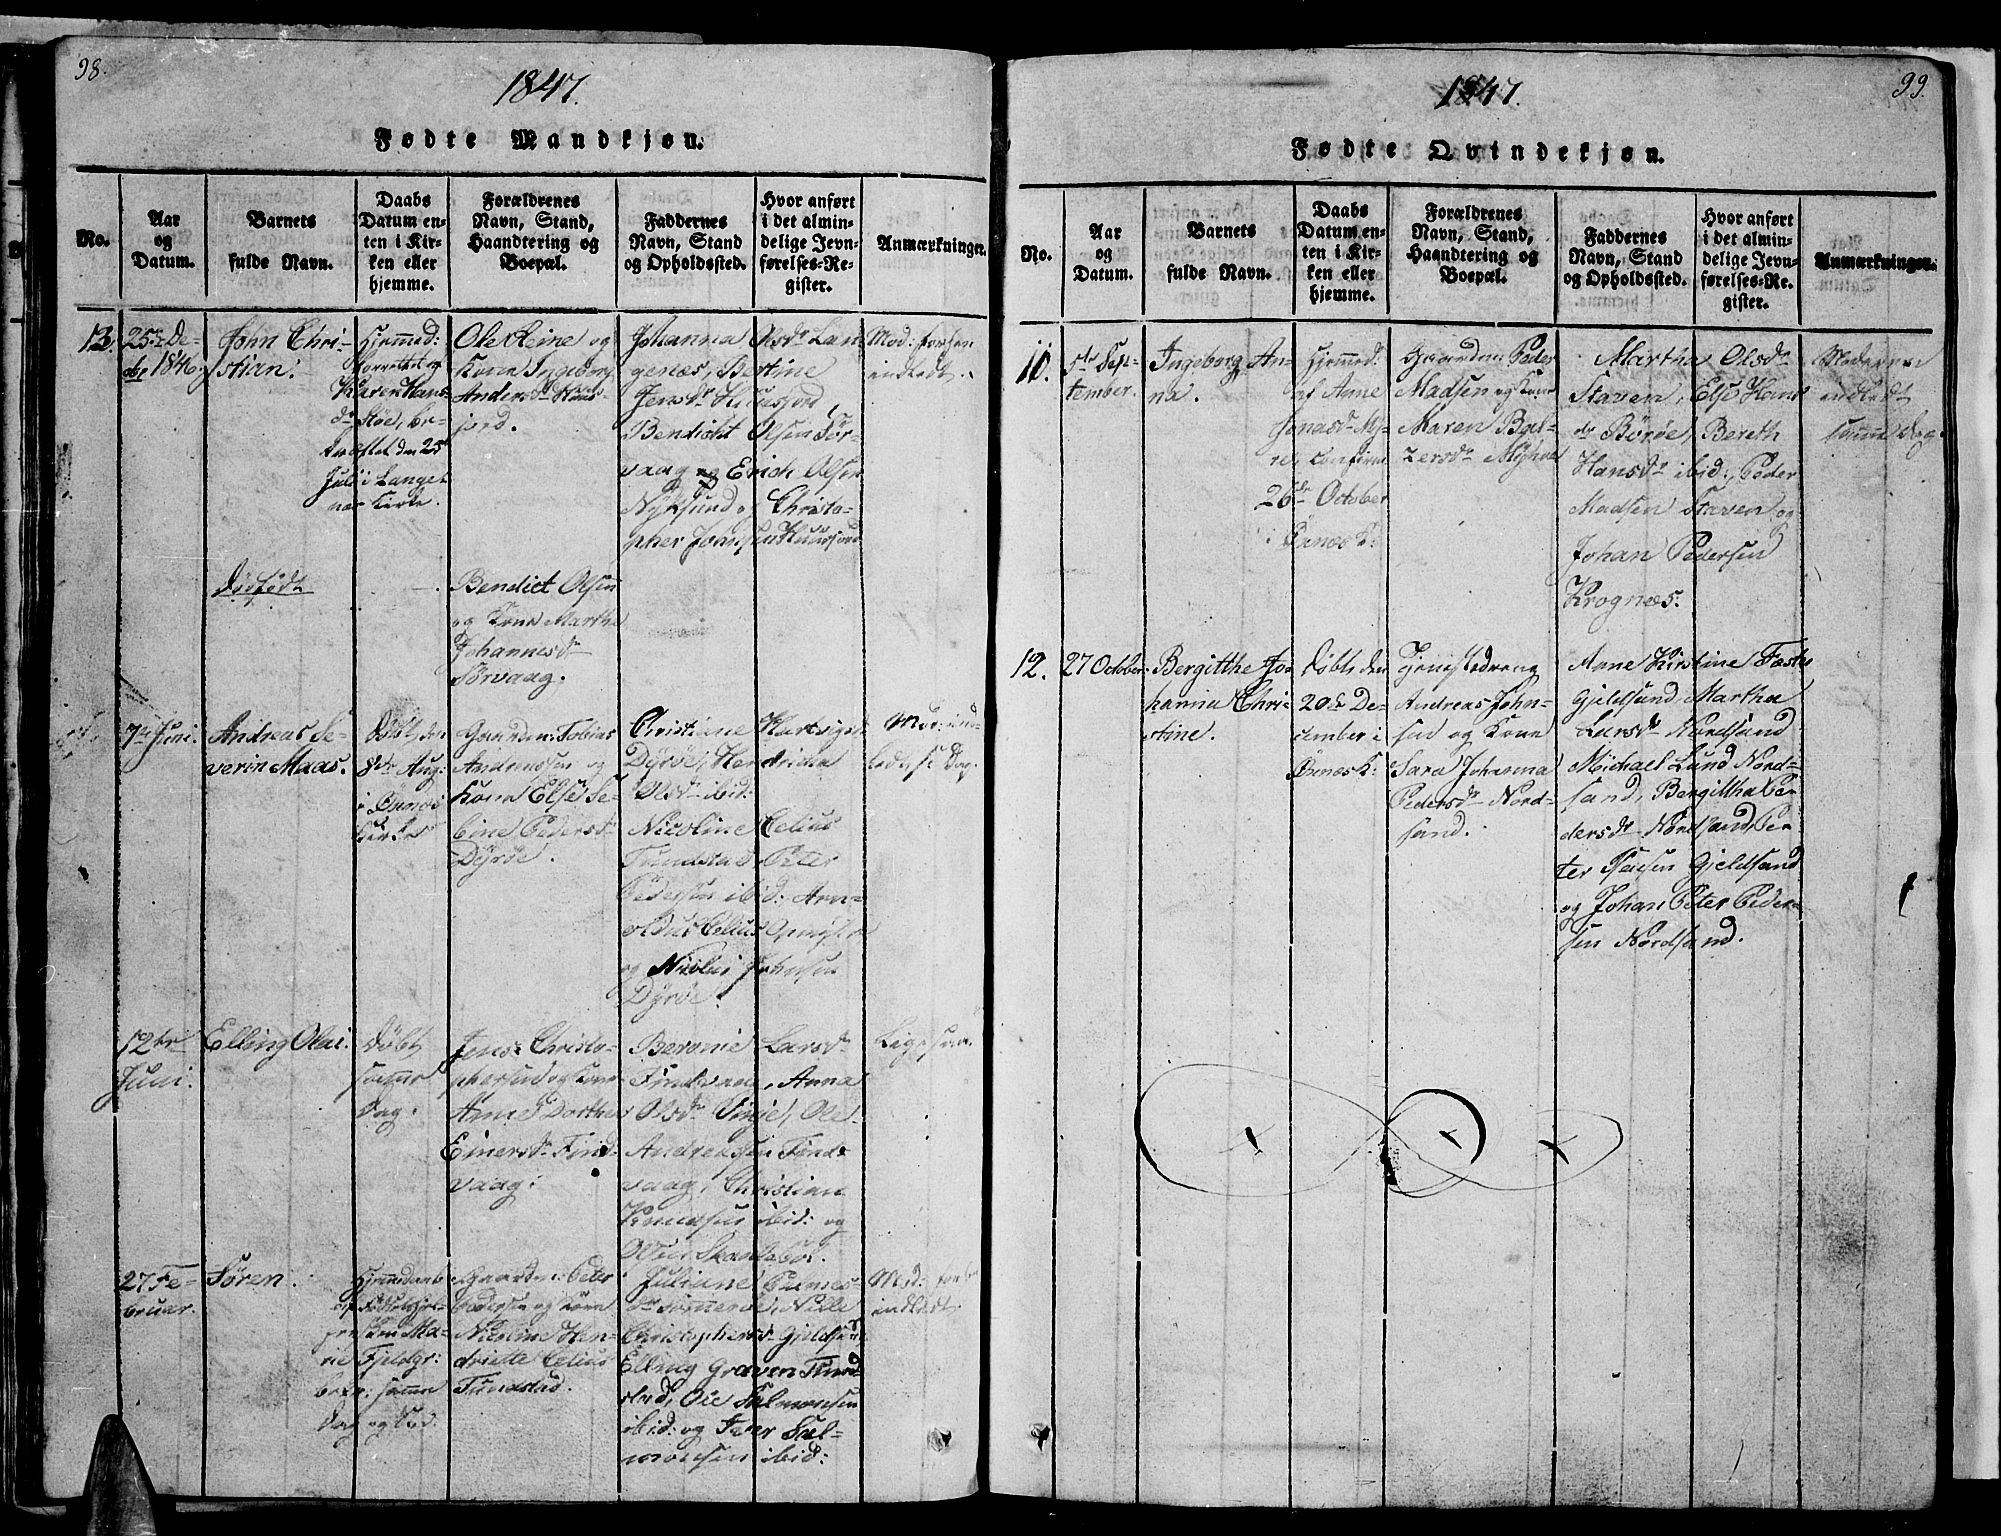 98.
1847.
Fødte Mandkjøn.
No.
Aar
og
Datum.
Barnets
fulde Navn.
Daabs
Datum en-
ten i Kir-
ken eller
hjemme.
Forældrenes
Navn, Stand,
Haandtering og
Boepæl.
Faddernes
Navn, Stand
og Opholdssted.
Hvor anført
i det almin-
delige Jevn-
førelses-Re-
gister.
Anmærkninger.
13.
25de De-
cbr 1846.
John Chri-
stian.
Hjemmed:
Karen Hans-
dr
den 25
Juli i Lange-
næs Kirke.
Ole Steine og
Kone Ingeborg
Andersdr Huus-
jord.
Johanna Olsdr Lan-
genæs, Bertine
Jensdr Huusjord,
Bendickt Olsen Sør-
vaag og Erich Olsen
Nyksund og Christo-
pher Johnsen Huusjord
Mod: forsen
indledt.
Dødfødt
Bendict Olsen
og Kone Marthe
Johannesdr
Sørvaag.
7de Juni.
Andreas Se-
verin Maas.
Døbt den
8de Aug:
i Øxnæs
Kirke
Gaardm: Tobias
Andreassen og
Kone Else Se-
bine Pedersdr
Dyrøe.
Christiane Hartvigsdr
Dyrøe, Hendrikka
Olsdr ibid:
Nicoline Celius
Tundstad Peter
Pedersen ibid: Arn-
oldus Celius
og Nicolai Johnsen
Dyrøe.
Mod: ind-
ledt s: Dag.
12te
Juni.
Elling Olai.
Døbt
samme
Dag.
Jens Christo-
phersen og Kone
Anne Dorthea
Einersdr Find-
vaag.
Beronie Larsdr
Findvaag, Anna
Olsdr Vinje, Ole
Andreasen Find-
vaag, Christian
Knudsen ibid: og
Ligesaa.
27 Fe-
bruar.
Søren.
Hjemmedaab
Ma-
rie Fjeldgr:
samme
Dag og Død.
Gaardm: Peter
Pedersen og Kone
Nicoline Hen-
driette Celius
Tundstad.
Juliane
Nille
Christophersdr Gjeldsund
Elling Graven Tund-
stad, Ole Salmonsen
ibid: og Iver Sal-
monsen ibid:
Mod: forhen
indledt.
99.
1847.
Fødte Qvindekjøn.
No.
Aar
og
Datum.
Barnets
fulde Navn.
Daabs
Datum en-
ten i Kir-
ken eller
hjemme.
Forældrenes
Navn, Stand,
Haandtering og
Boepæl.
Faddernes
Navn, Stand
og Opholdssted.
Hvor anført
i det almin-
delige Jevn-
førelses-Re-
gister.
Anmærkninger.
11.
5te Sep-
tember.
Ingeborg An-
na.
Hjemmed:
af Anne
Jonasdr My-
re, Confirm:
26de October
i Øxnæs K:
Gaardm: Peder
Madsen og Kone
Maren Bal-
zersdr Myhre
Martha Olsdr
Staven, Else Hans
dr Børøe, Bereth
Hansdr ibid:, Peder
Madsen Staven og
Johan Pedersen
Krognæs.
Moderen
indledt
samme Dag.
12.
27 October.
Bergitthe Jo-
hanna Chri-
stine.
Døbt den
20de De-
cember i
Øxnæs K:
Tjenestedreng
Andreas John-
sen og Kone
Sara Johanna
Pedersdr Nord-
sand.
Anne Kirstine Fæster
Gjeldsund Martha
Larsdr Nordsand
Michael Lund Nord-
sand, Bergittha Pe-
dersdr Nordsand, Pe-
ter Gjeldsund
og Johan Peter Peder-
sen Nordsand.